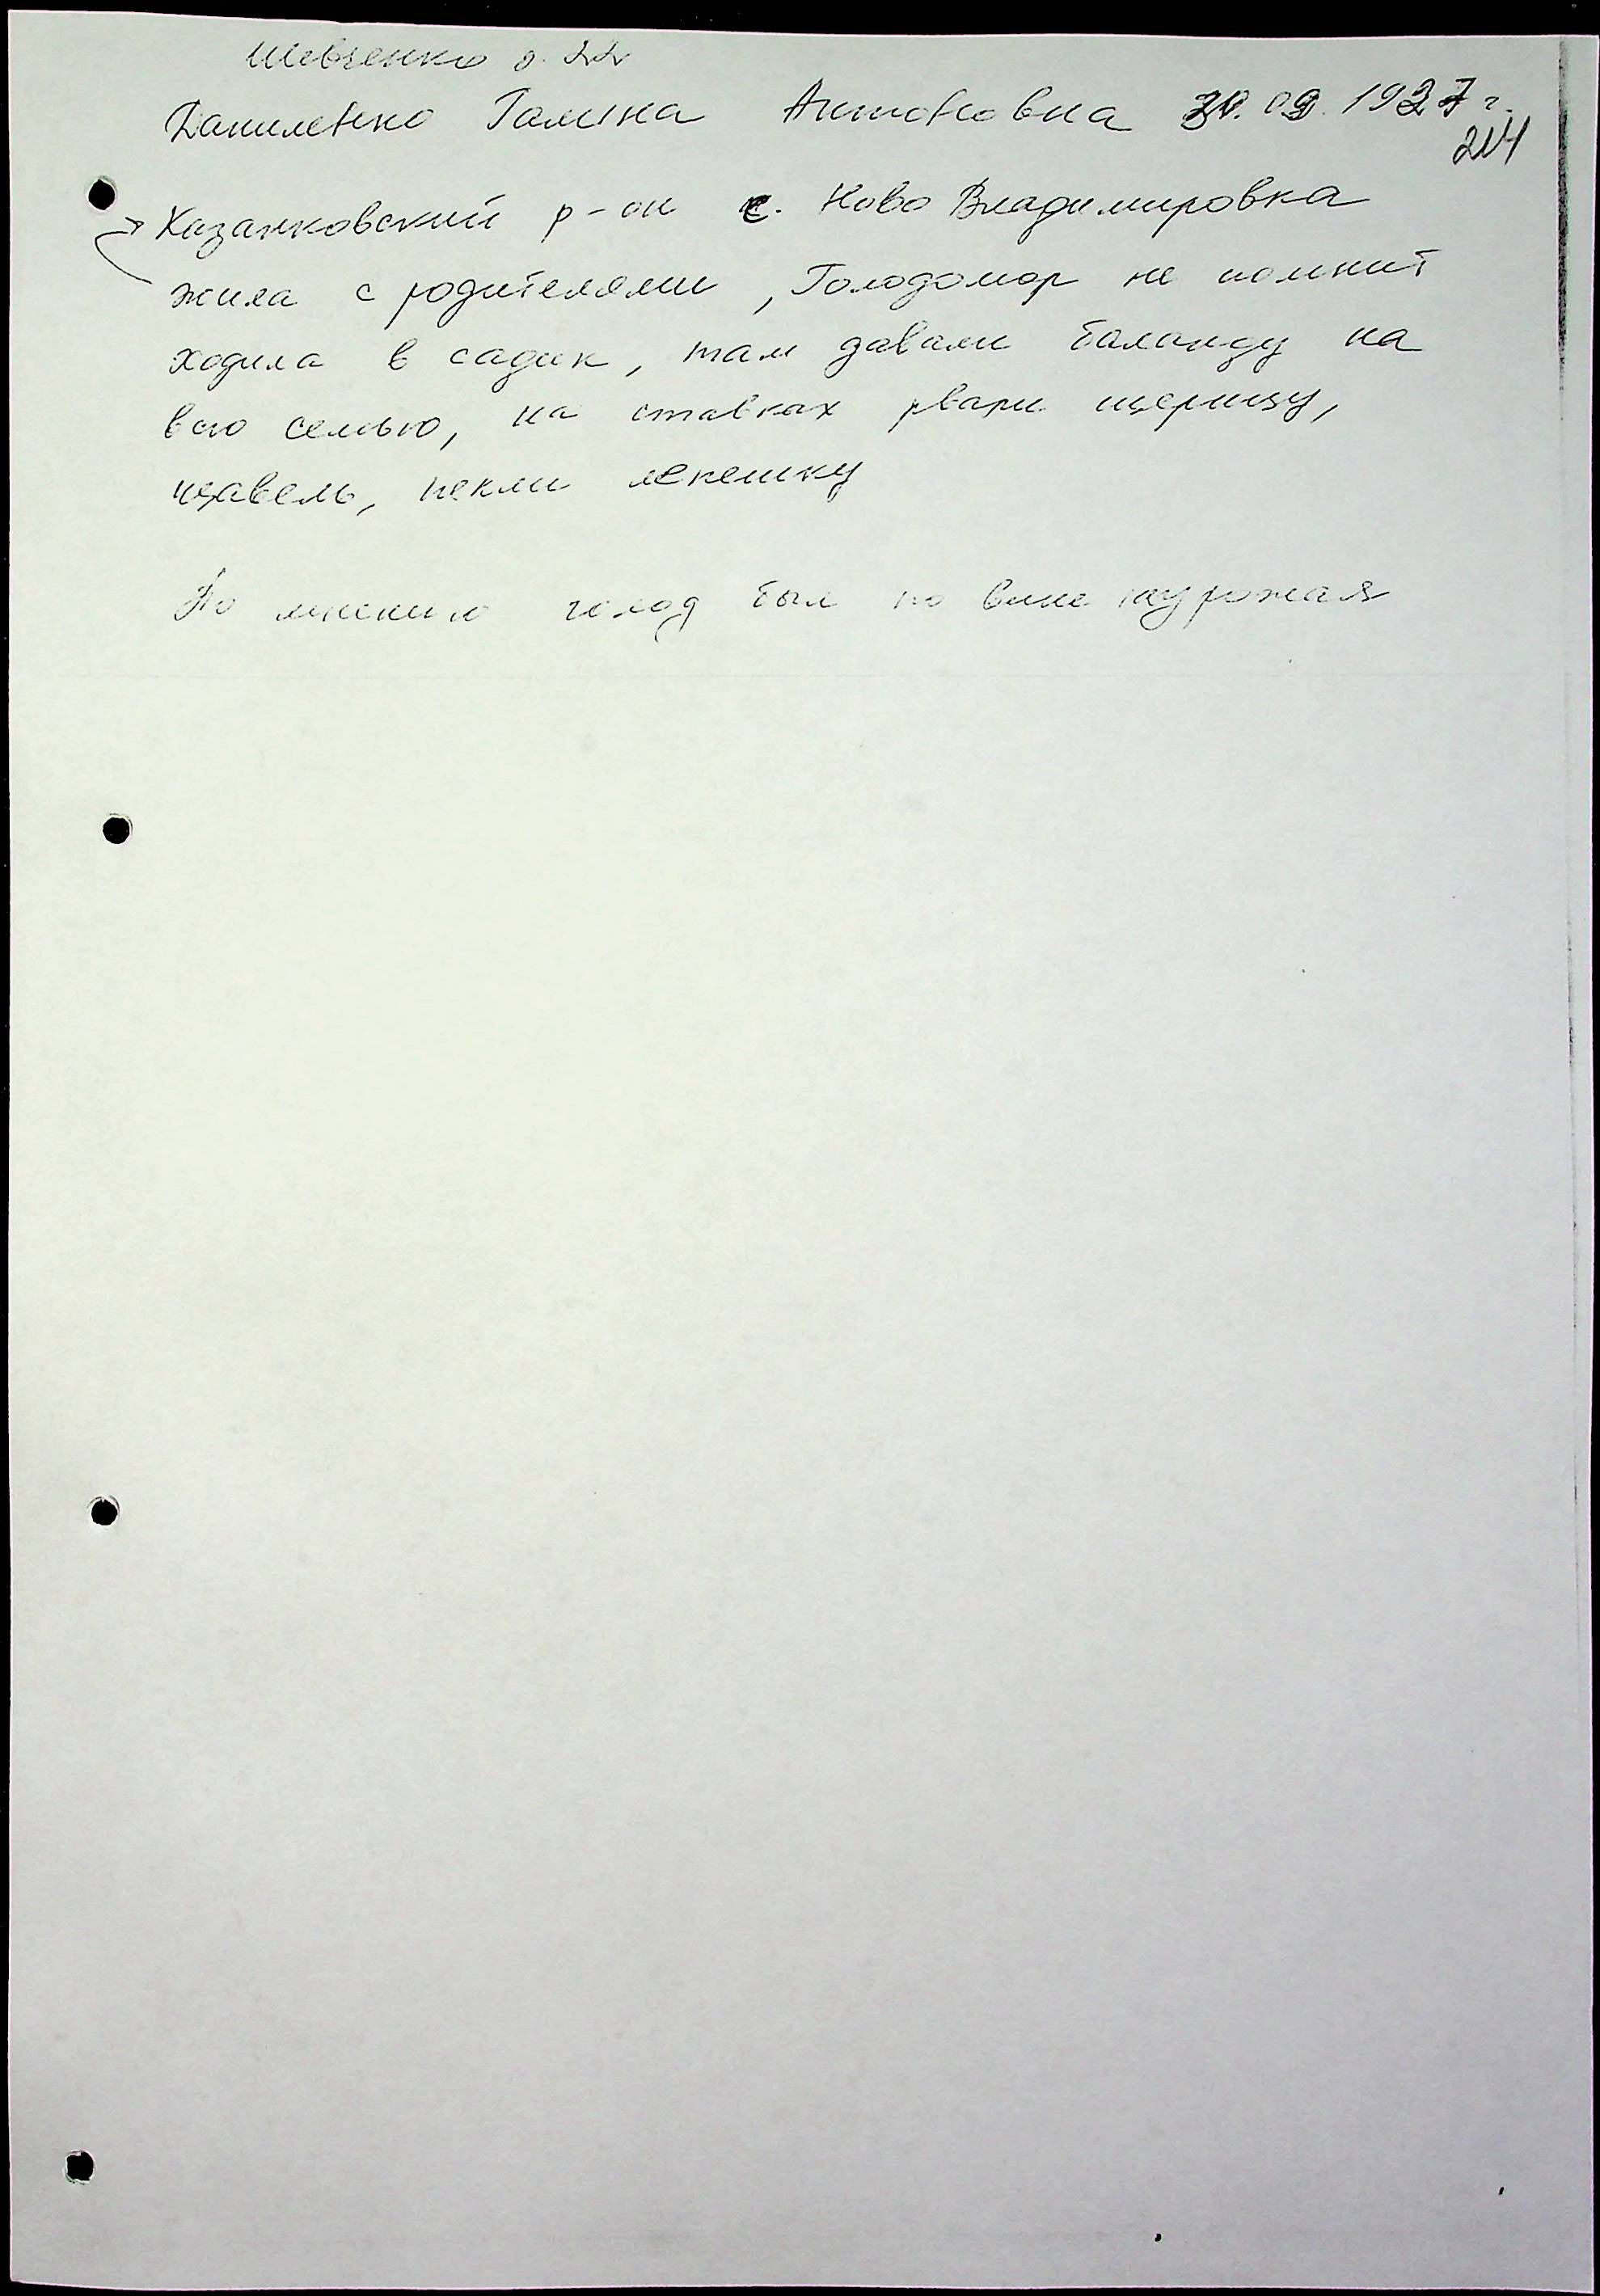 Шевченко д. 22
Даниленко Галина Антоновна 30.09.1927 г.
214
Казанковский р-он с. Ново Владимировка
жила с родителями, Голодомор не помнит
ходила в садик, там давали баланду на
всю семью, на ставках рвали щерицу,
щавель, пекли лепешку
По мнению голод был по вине неурожая